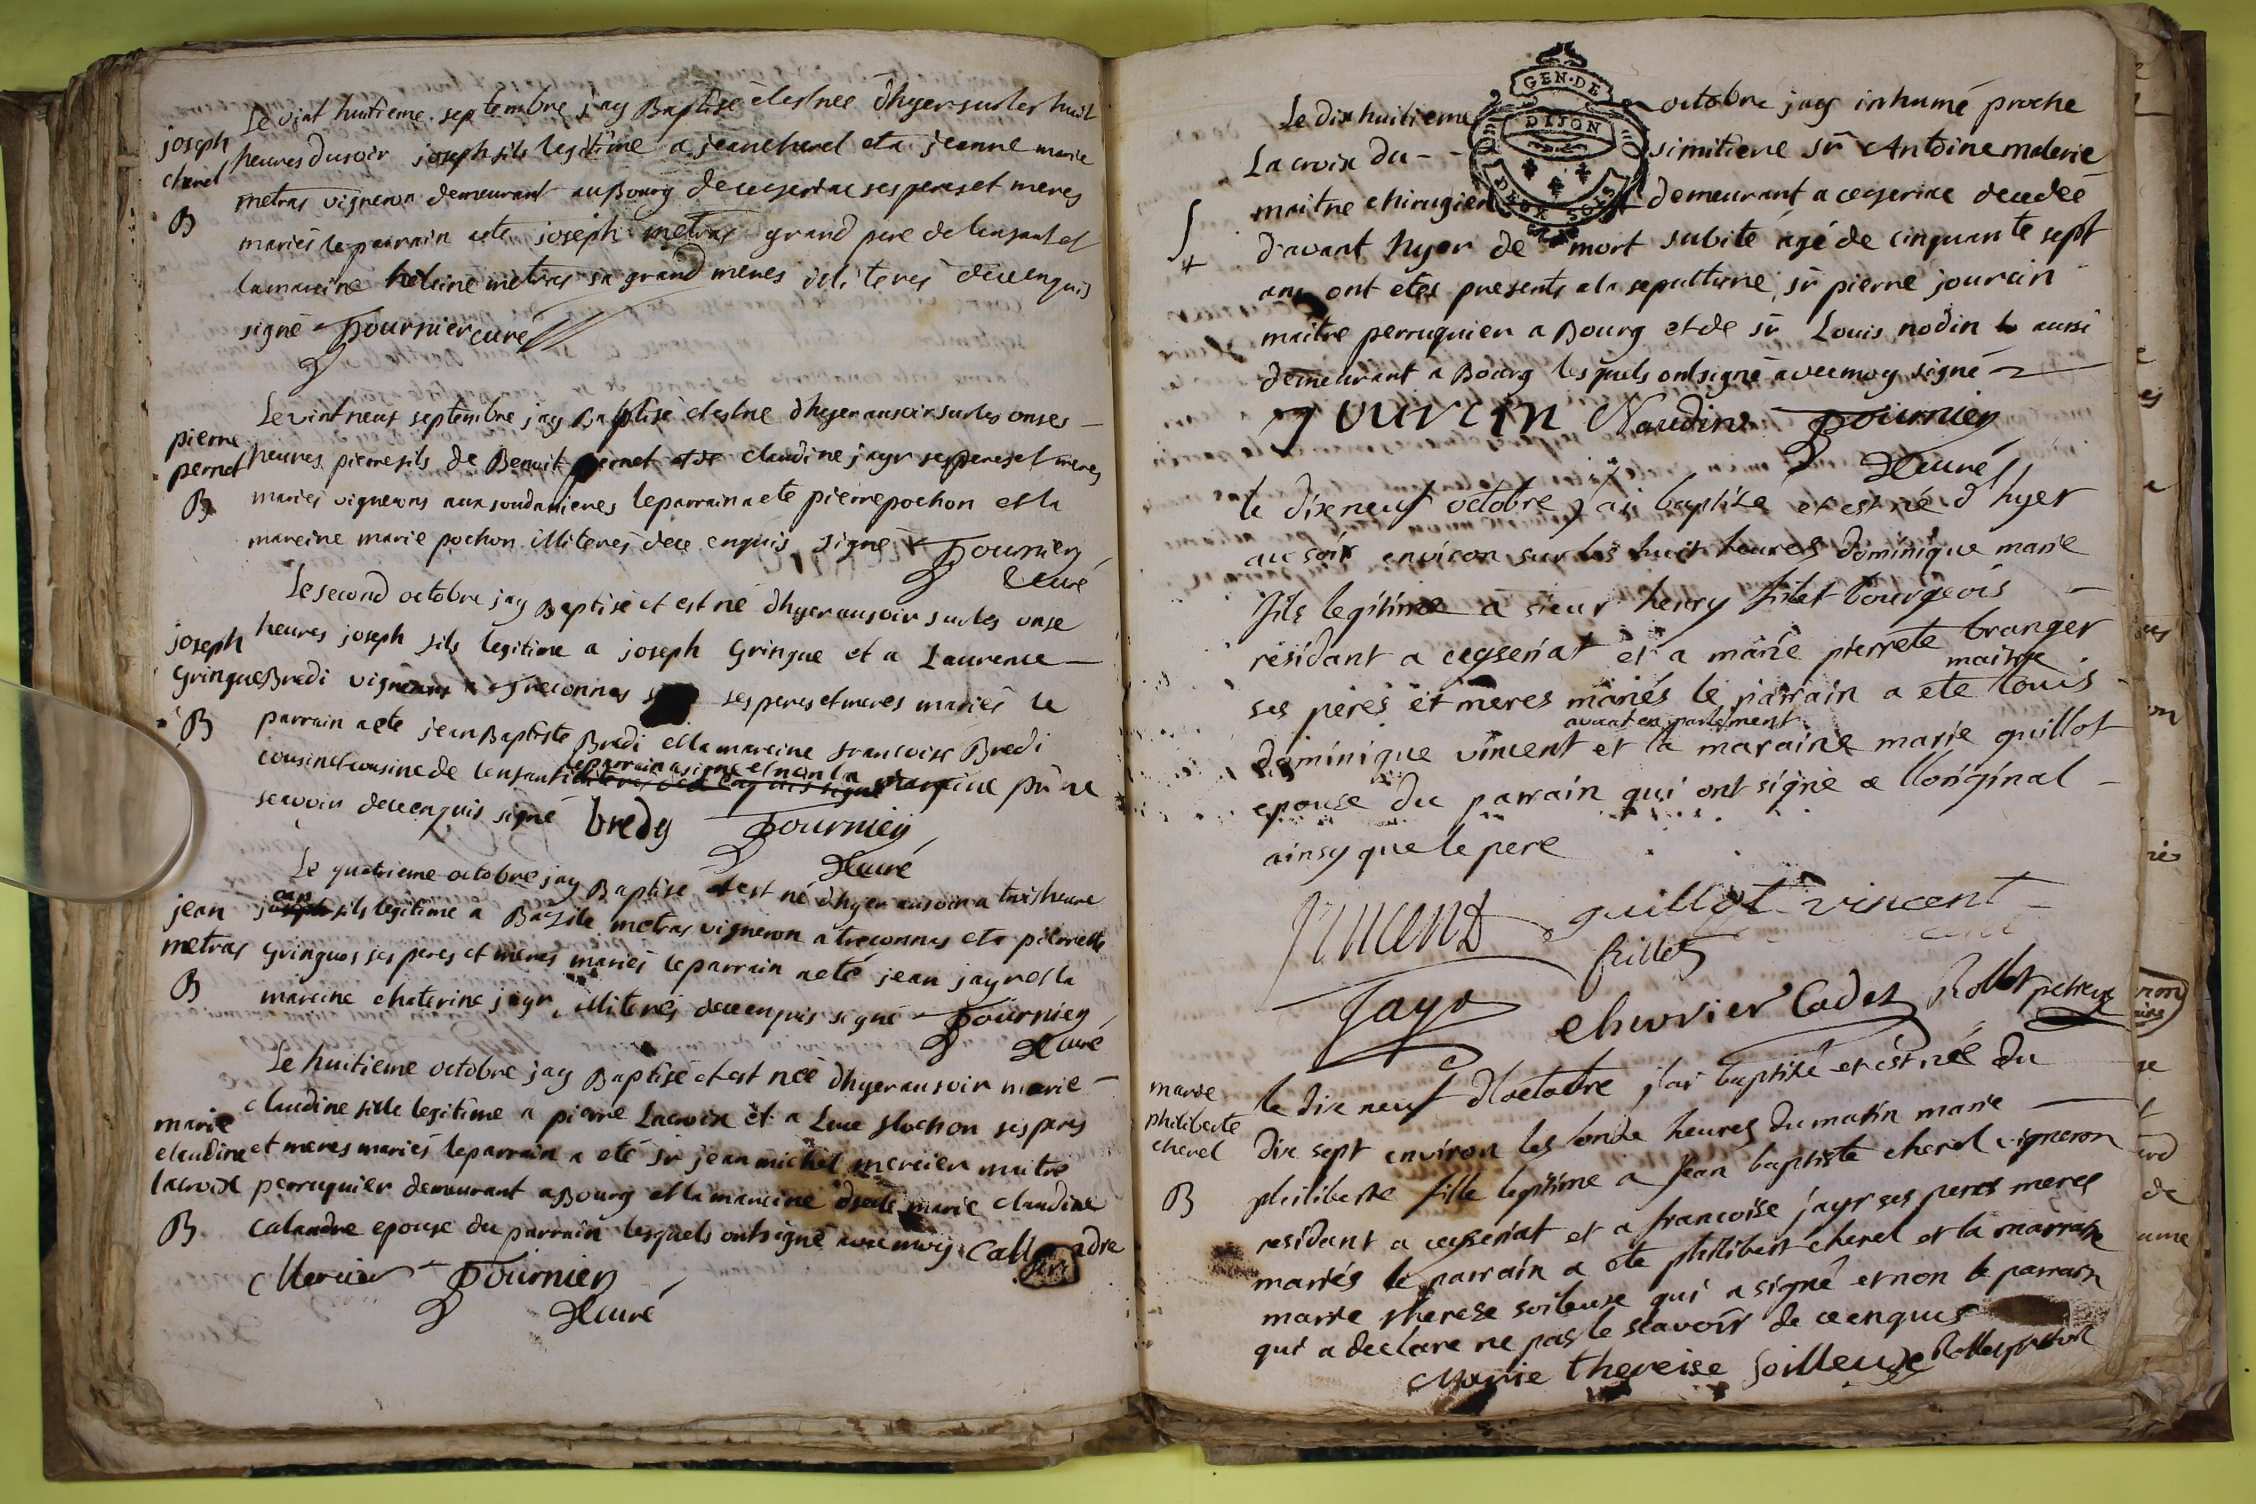 Le vint huitieme septembre jay Baptisé et est née dhyer sur les huit
joseph
cherel
B
heures du soir joseph fils legitime a jean cherel et a jeanne marie
metras vigneron demeurant au Bourg de ceyseriac ses peres et meres
mariés le parrain a ete joseph metras grand pere de lenfant et
la mareine helaine metras sa grand meres illiterés de ce enquis
signé Fournier curé
Le vint neuf septembre jay Baptisé et est né dhyer au soir sur les onses
pierre
pernet
B
heures pierre fils de Benoit pernet et de claudine jayr ses peres et meres
mariés vignerons aux soudanieres le parrain a ete pierre pochon et la
mareine marie pochon illiterés de ce enquis signé Fournier
curé
Le second octobre jay Baptisé et est né dhyer au soir sur les onse
joseph
Gringue
B
heures joseph fils legitime a joseph Gringue et a Laurence
Bredi vignerons a treconnas ses peres et meres mariés le
parrain a ete jean Baptiste Bredi et la mareine francoise Bredi
cousin et cousine de lenfant le parrain a signé et non la mareine pour ne
scavoir de ce enquis signé bredy Fournier
curé
Le quatrieme octobre jay Baptisé et est né dhyer au soir a trois heure
jean
metras
B
jean fils legitime a Bazile metras vigneron a treconnas et a pierrette
Gringues ses peres et meres mariés le parrain a eté jean jayr et la
mareine chaterine jayr illiterés de ce enquis signé Fournier
curé
Le huitieme octobre jay Baptisé et est néé dhyer au soir marie
marie
claudine
lacroix
B
claudine fille legitime a pierre Lacroix et a Luce flochon ses peres
et meres mariés le parrain a eté Sr jean michel mercier maitre
perruquier demeurant a Bourg et la mareine dselle marie claudine
calandre epouse du parrain lesquels ont signé avec moy Callandre
Mercier Fournier
curé
Le dix huitieme octobre jay inhumé proche
GEN. DE
DIJON
DEUX SOLS
La croix du simitiere Sr Antoine malerie
maitre chirugien demeurant a ceyseriac decedée
d'avant hyer de mort subite agé de cinquante sept
ans ont etés presents a la sepulture Sr pierre jourcin
maitre perruquier a Bourg et de Sr Louis nodin aussi
demeurant a Bourg lesquels ont signé avec moy signé
Jourcin Naudin Fournier
curé
le dix neuf octobre j'ai baptisé et est né d'hyer
au soir environ sur les huit heures dominique marie
fils legitime a sieur henry frilet bourgeois
residant a ceyseriat et a marie pierrete branger
ses peres et meres mariés le parrain a ete maitre louis
dominique vincent avocat en parlement et la maraine marie guillot
epouse du parrain qui ont signé a l'original
ainsy que le pere
Vincent guillot vincent
frillet
Jayr chevrier Cadet Rollet pretre
le dix neuf d'octobre j'ai baptisé et est née du
marie
philiberte
cherel
B
dix sept environ les onde heures du matin marie
philiberte fille legitime a jean baptiste cherel vigneron
residant a ceyseriat et a francoise jayr ses peres meres
mariés le parrain a ete philibert cherel et la marraine
marie therese soileuse qui a signé et non le parrain
qui a declare ne pas le scavoir de ce enquis
Marie thereise Soilleuze Rollet pretre